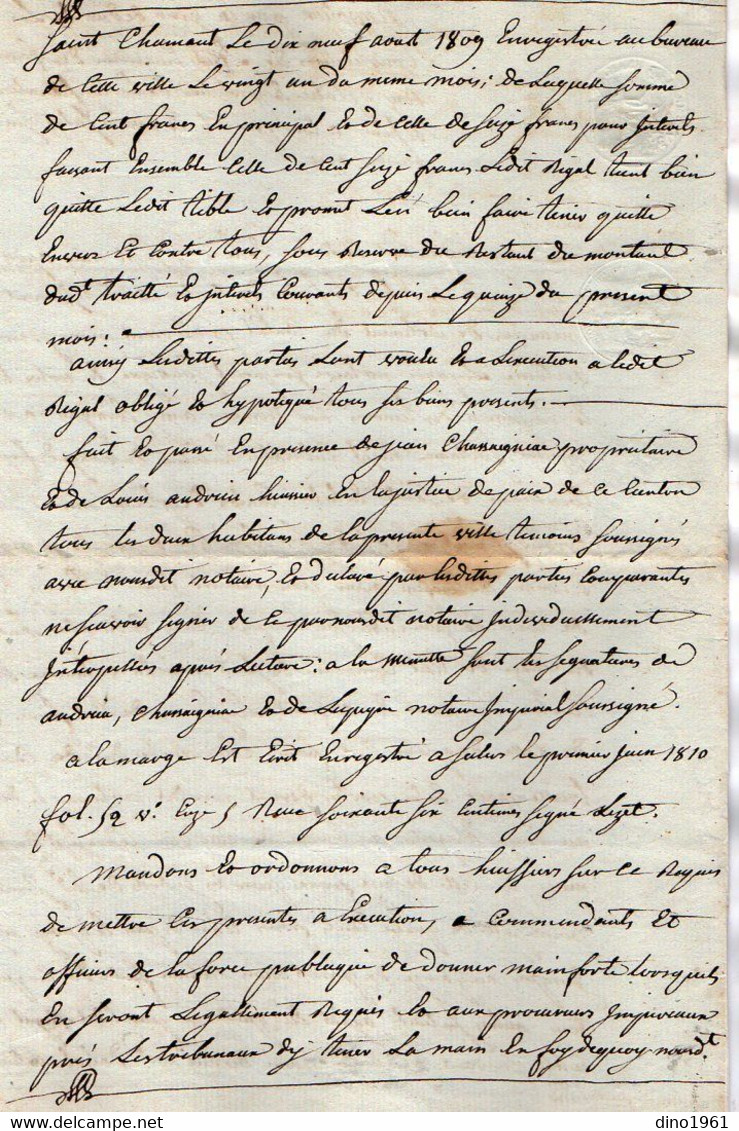 Saint Chamant Le dix neuf aoust 1809 Enregistré au bureau
de Cette ville Le vingt un du meme mois; de Laquelle somme
de Cent francs En principal Et de Celle de Seize francs pour Interets
faisant Ensemble Celle de Cent Seize francs Ledit Rigal tient bien
quitte Ledit Tible Et promet Len bien faire tenir quitte
Envers Et Contre tous, Sous Reserve du Restant du montant
dudt traitté Et Interets Courants depuis Le quinze du present
mois:
ainsy Lesdittes parties Lont voulu Et a Lexecution a ledit
Rigal obligé Et hypotequé tous ses biens presents.
fait Et passé En presence de jean Chassagniac propriétaire
Et de Louis andrieu huissier En la justice de paix de Ce Canton
tous les deux habitans de la presente ville temoins Soussignés
avec nousdit notaire, Et declaré par lesdittes parties Comparantes
ne Scavoir Signer de Ce par nousdit notaire Individuellement
Interpellées après Lecture: a la minutte Sont les Signatures de
andrieu, Chassaigniac Et de notaire Imperial Soussigné.
a la marge Est Ecrit Enregistré a le premier juin 1810
fol. 52 v. Case 5 Recu Soixante Six Centimes Signé Lizet.
Mandons Et ordonnons a tous huissiers Sur Ce Requis
de mettre Ces presentes a Execution, a Commendants Et
officiers de la force publique de donner main forte Lorsquils
En Seront Legallement Requis Et aux procureurs Imperiaux
près Les tribunaux dy tenir La main En foy de quoy nousdt
dino1961